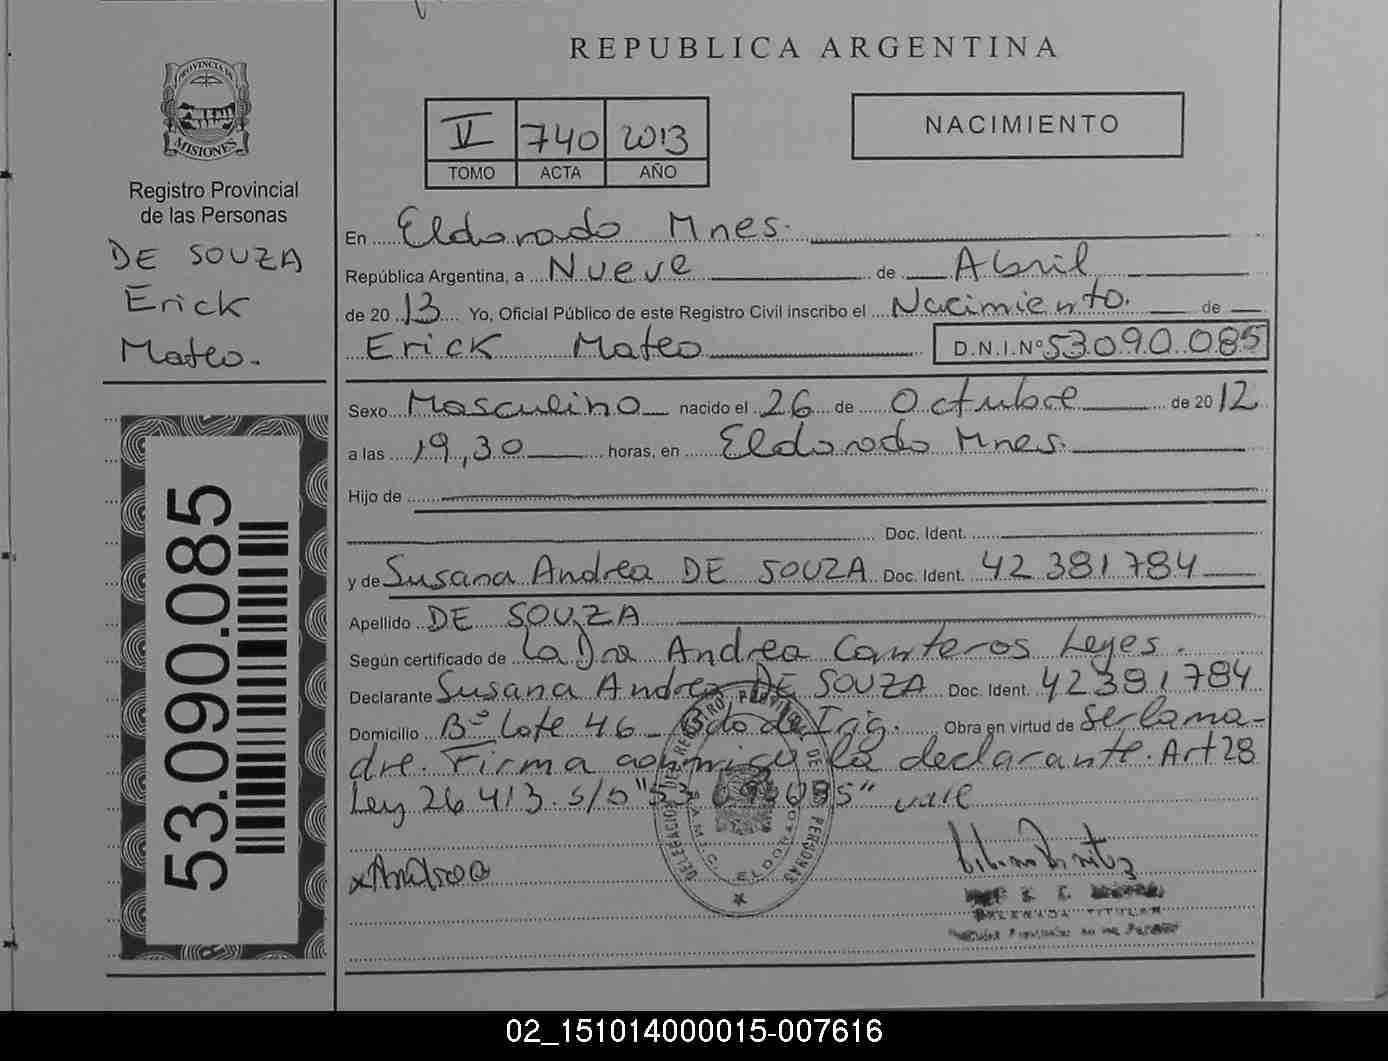 REPUBLICA ARGENTINA
PROVINCIA DE
MISIONES
Registro Provincial
de las Personas
DE SOUZA
Erick
Mateo.
53.090.085
V 740 2013
TOMO ACTA AÑO
NACIMIENTO
En Eldorado Mnes.
República Argentina, a Nueve de Abril
de 2013 Yo, Oficial Público de este Registro Civil inscribo el Nacimiento. de
Erick Mateo D.N.I.Nº 53.090.085
Sexo Masculino nacido el 26 de Octubre de 2012
a las 19,30 horas, en Eldorado Mnes.
Hijo de
Doc. Ident.
y de Susana Andrea DE SOUZA Doc. Ident. 42 381 784
Apellido DE SOUZA
Según certificado de La Dra Andrea Canteros Leyes.
Declarante Susana Andrea DE SOUZA Doc. Ident. 42 381 784
Domicilio Bº Lote 46 Obra en virtud de ser la ma-
dre. Firma conmigo la declarante. Art 28
Ley 26.413. s/b "53 090 085" vale
x Andrea
DELEGACION DEL REGISTRO PROVINCIAL DE LAS PERSONAS
ELDORADO
DELEGADA TITULAR
02_151014000015-007616